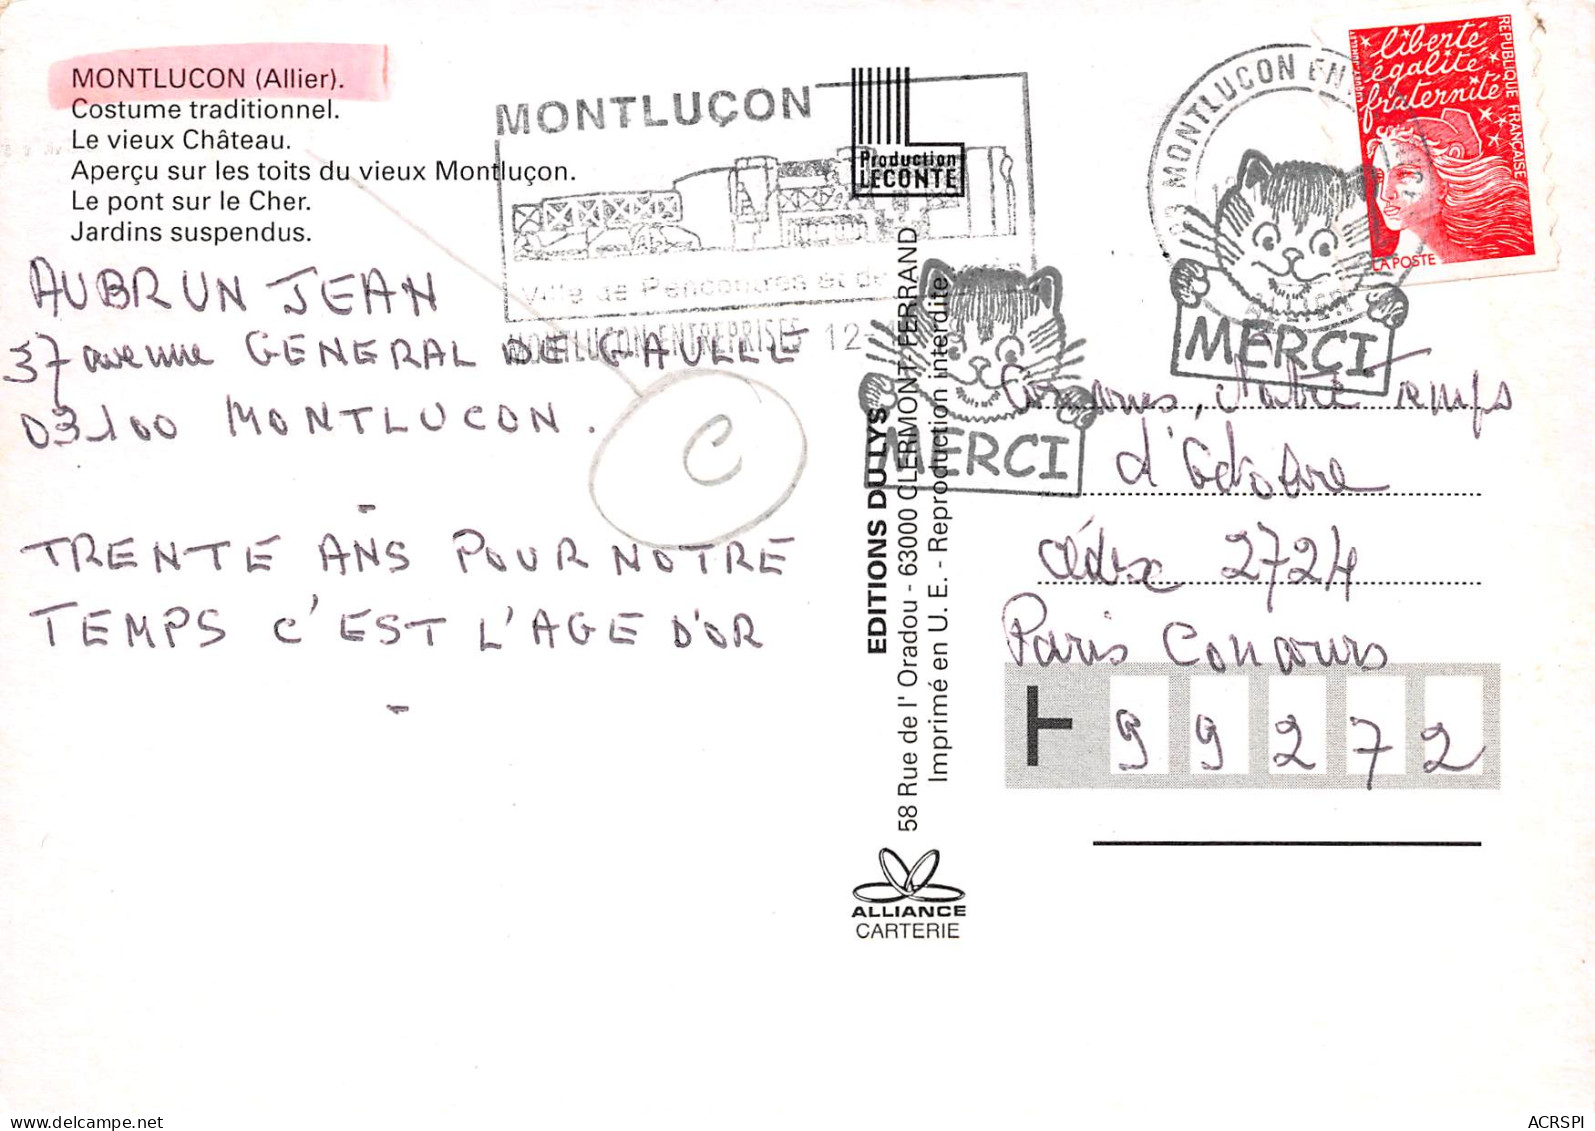 MONTLUCON (Allier).
Costume traditionnel.
Le vieux Château.
Aperçu sur les toits du vieux Montluçon.
Le pont sur le Cher.
Jardins suspendus.
AUBRUN JEAN
37 avenue GENERAL DE GAULLE
03100 MONTLUCON.
-
TRENTE ANS POUR NOTRE
TEMPS C'EST L'AGE D'OR
-
C
MONTLUÇON
Ville de Rencontres et de
MONTLUCON ENTREPRISES 12-
Production
LECONTE
EDITIONS DU LYS
58 Rue de l' Oradou - 63000 CLERMONT-FERRAND
Imprimé en U. E. - Reproduction interdite
ALLIANCE
CARTERIE
MONTLUCON EN
MERCI
MERCI
liberté
égalité
fraternité
REPUBLIQUE FRANÇAISE
LA POSTE
Concours, Notre Temps
d'Octobre
Cédex 2724
Paris Concours
99272
ACRSPI